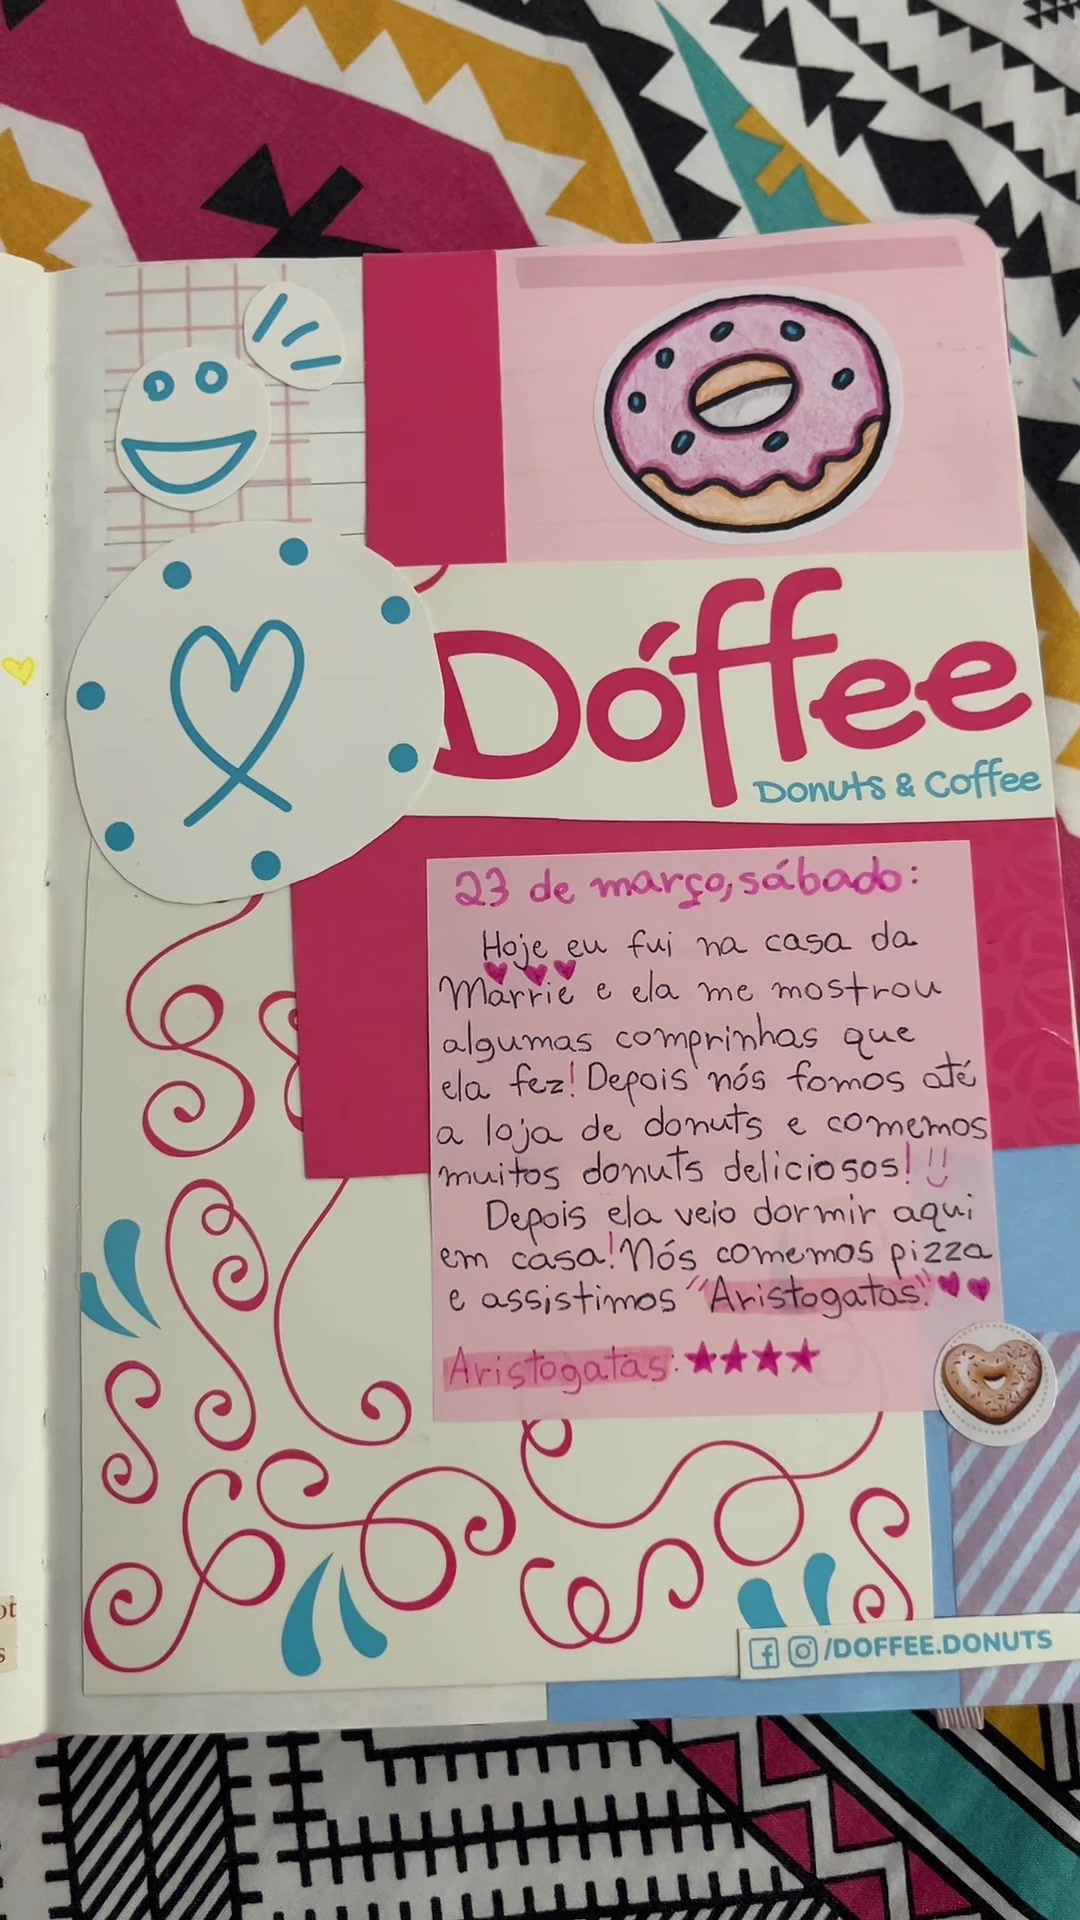 Dóffee
Donuts & Coffee
23 de março, sábado:
Hoje eu fui na casa da
Marrie e ela me mostrou
algumas comprinhas que
ela fez! Depois nós fomos até
a loja de donuts e comemos
muitos donuts deliciosos! !!
Depois ela veio dormir aqui
em casa! Nós comemos pizza
e assistimos "Aristogatas".
Aristogatas: ★★★★
/DOFFEE.DONUTS